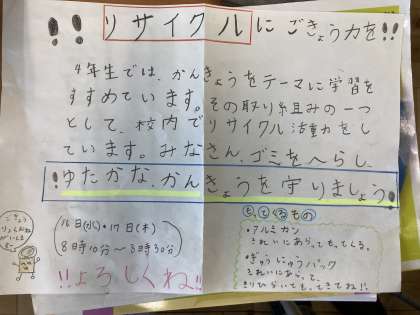 !!リサイクルにごきょう力を!!
4年生では、かんきょうをテーマに学習を
すすめています。その取り組みの一つ
として、校内でリサイクル活動をし
ています。みなさん、ゴミをへらし、
!ゆたかな、かんきょうを守りましょう!
16日(水)・17日(木)
8時10分〜8時30分
!!よろしくね!!
もってくるもの
・アルミカン
きれいにあらってもってくる。
・ぎゅうにゅうパック
きれいにあらって、
きりひらいてもってきてね!